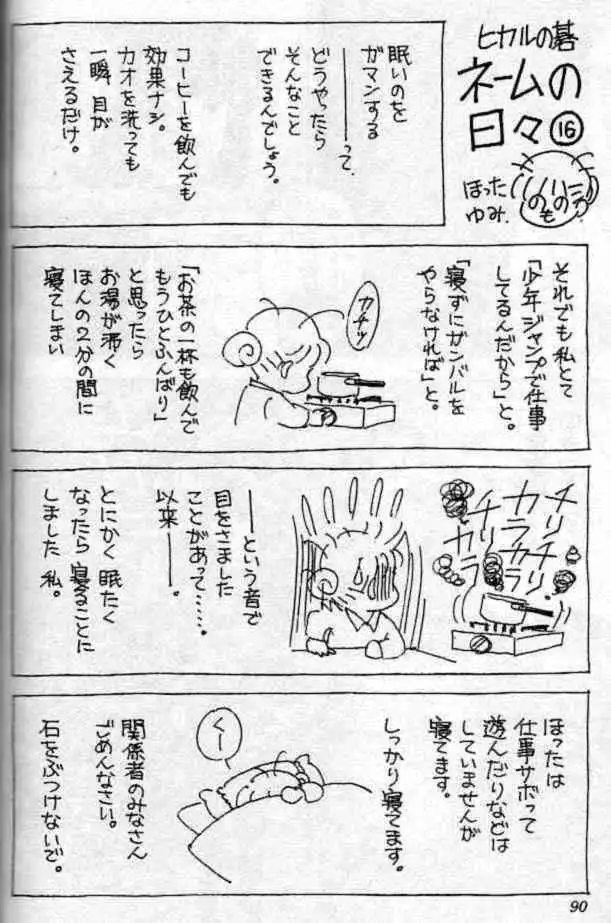 ヒカルの碁
ネームの
日々⑯
ほった
ゆみ
眠いのを
ガマンする
────って、
どうやったら
そんなこと
できるんでしょう。
コーヒーを飲んでも
効果ナシ。
カオを洗っても
一瞬 目が
さえるだけ。
それでも私とて
「少年ジャンプで仕事
してるんだから」と。
「寝ずにガンバルを
やらなければ」と。
カチッ
「お茶の一杯も飲んで
もうひとふんばり」
と思ったら
お湯が沸く
ほんの2分の間に
寝てしまい
チリチリ
チリ
カラカラ
カラ
───という音で
目をさました
ことがあって……。
以来───。
とにかく 眠たく
なったら 寝ることに
しました 私。
ほったは
仕事サボって
遊んだりなどは
していませんが
寝てます。
しっかり寝てます。
くー
関係者のみなさん
ごめんなさい。
石をぶつけないで。
90